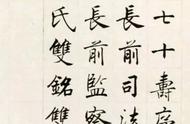 七十壽序
長前司法
長前監察
氏雙銘雙